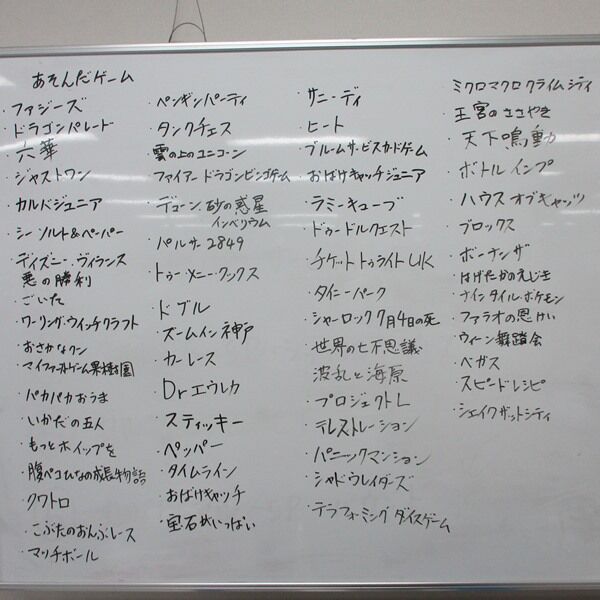 あそんだゲーム
・ファジーズ
・ドラゴンパレード
・六華
・ジャストワン
・カルバジュニア
・シーソルト&ペーパー
・ディズニー・ヴィランズ
悪の勝利
・ごいた
・ワーリング・ウィッチクラフト
・おさかなクン
・マイファーストゲーム果樹園
・パカパカおうま
・いかだの五人
・もっとホイップを
・腹ペコひなの成長物語
・クワトロ
・こぶたのおんぶレース
・マッチボール
・ペンギンパーティ
・タンクチェス
・雲の上のユニコーン
・ファイアードラゴンビンゴゲーム
・デューン 砂の惑星
インペリウム
・パルサー2849
・トゥーメニークックス
・ドブル
・ズームイン神戸
・カーレース
・Drエウレカ
・スティッキー
・ペッパー
・タイムライン
・おばけキャッチ
・宝石がいっぱい
・サニーデイ
・ヒート
・ブルームサービスカードゲーム
・おばけキャッチジュニア
・ラミーキューブ
・ドゥードルクエスト
・チケットトゥライドUK
・タイニーパーク
・シャーロック7月4日の死
・世界の七不思議
波乱と海原
・プロジェクトL
・テレストレーション
・パニックマンション
・シャドウレイダーズ
・テラフォーミングダイスゲーム
・ミクロマクロクライムシティ
・王宮のささやき
・天下鳴動
・ボトルインプ
・ハウスオブキャッツ
・ブロックス
・ボーナンザ
・はげたかのえじき
・ナインタイル・ポケモン
・ファラオの恩けい
・ウィーン舞踏会
・ベガス
・スピードレシピ
・シェイクザットシティ